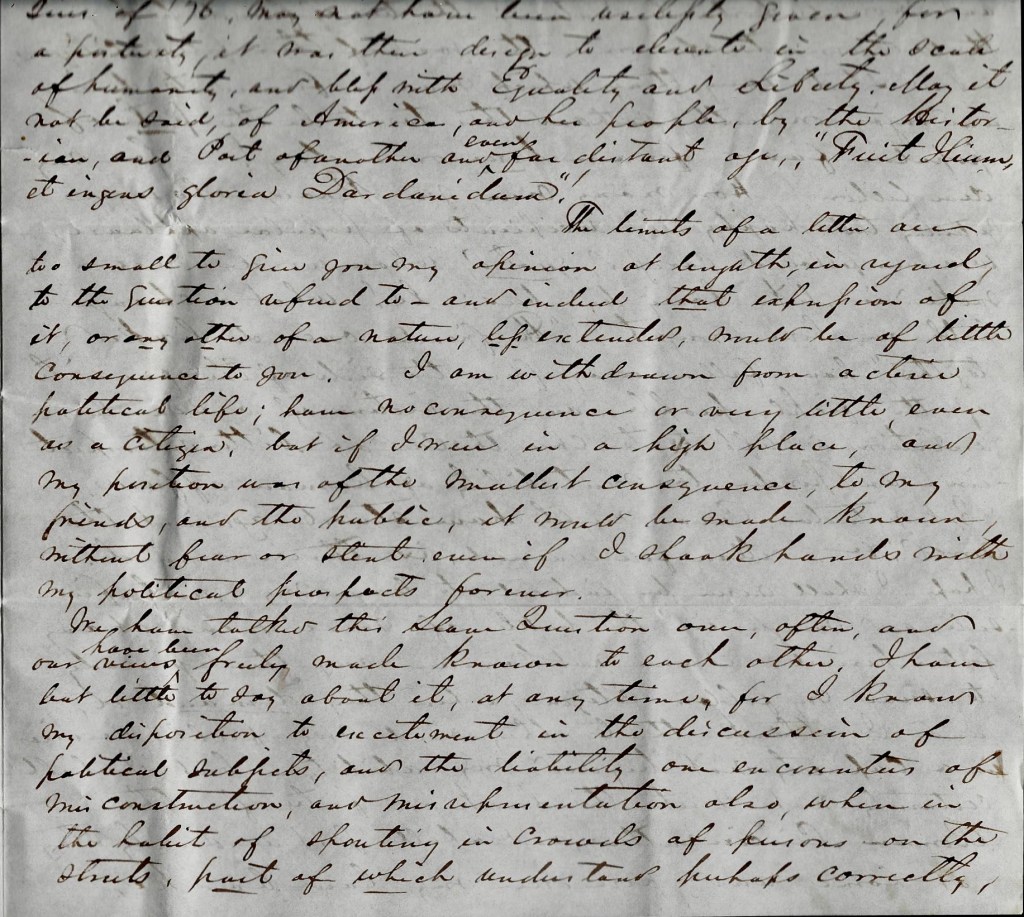 of '76, may not have been uselessly given, for
a posterity, it was their design to elevate in the scale
of humanity, and bless with Equality and Liberty. May it
not be said, of America, and her people, by the Histor-
-ian, and Poet of another and even far distant age, "Fuit Ilium,
et ingens gloria Dardanidum".
The limits of a letter are
too small to give you my opinion at length, in regard,
to the Question referred to – and indeed that expression of
it, or any other of a nature, less extended, would be of little
consequence to you. I am withdrawn from active
political life; have no consequence or very little, even
as a citizen, but if I were in a high place, and
my position was of the smallest consequence, to my
friends, and the public, it would be made known,
without fear or stent even if I shook hands with
my political prospects forever.
We have talked this Slave Question over, often, and
our views have been freely made known to each other. I have
but little to say about it, at any time, for I know
my disposition to excitement in the discussion of
political subjects, and the liability one encounters of
misconstruction, and misrepresentation also, when in
the habit of spouting in crowds of persons on the
streets, part of which understand perhaps correctly,